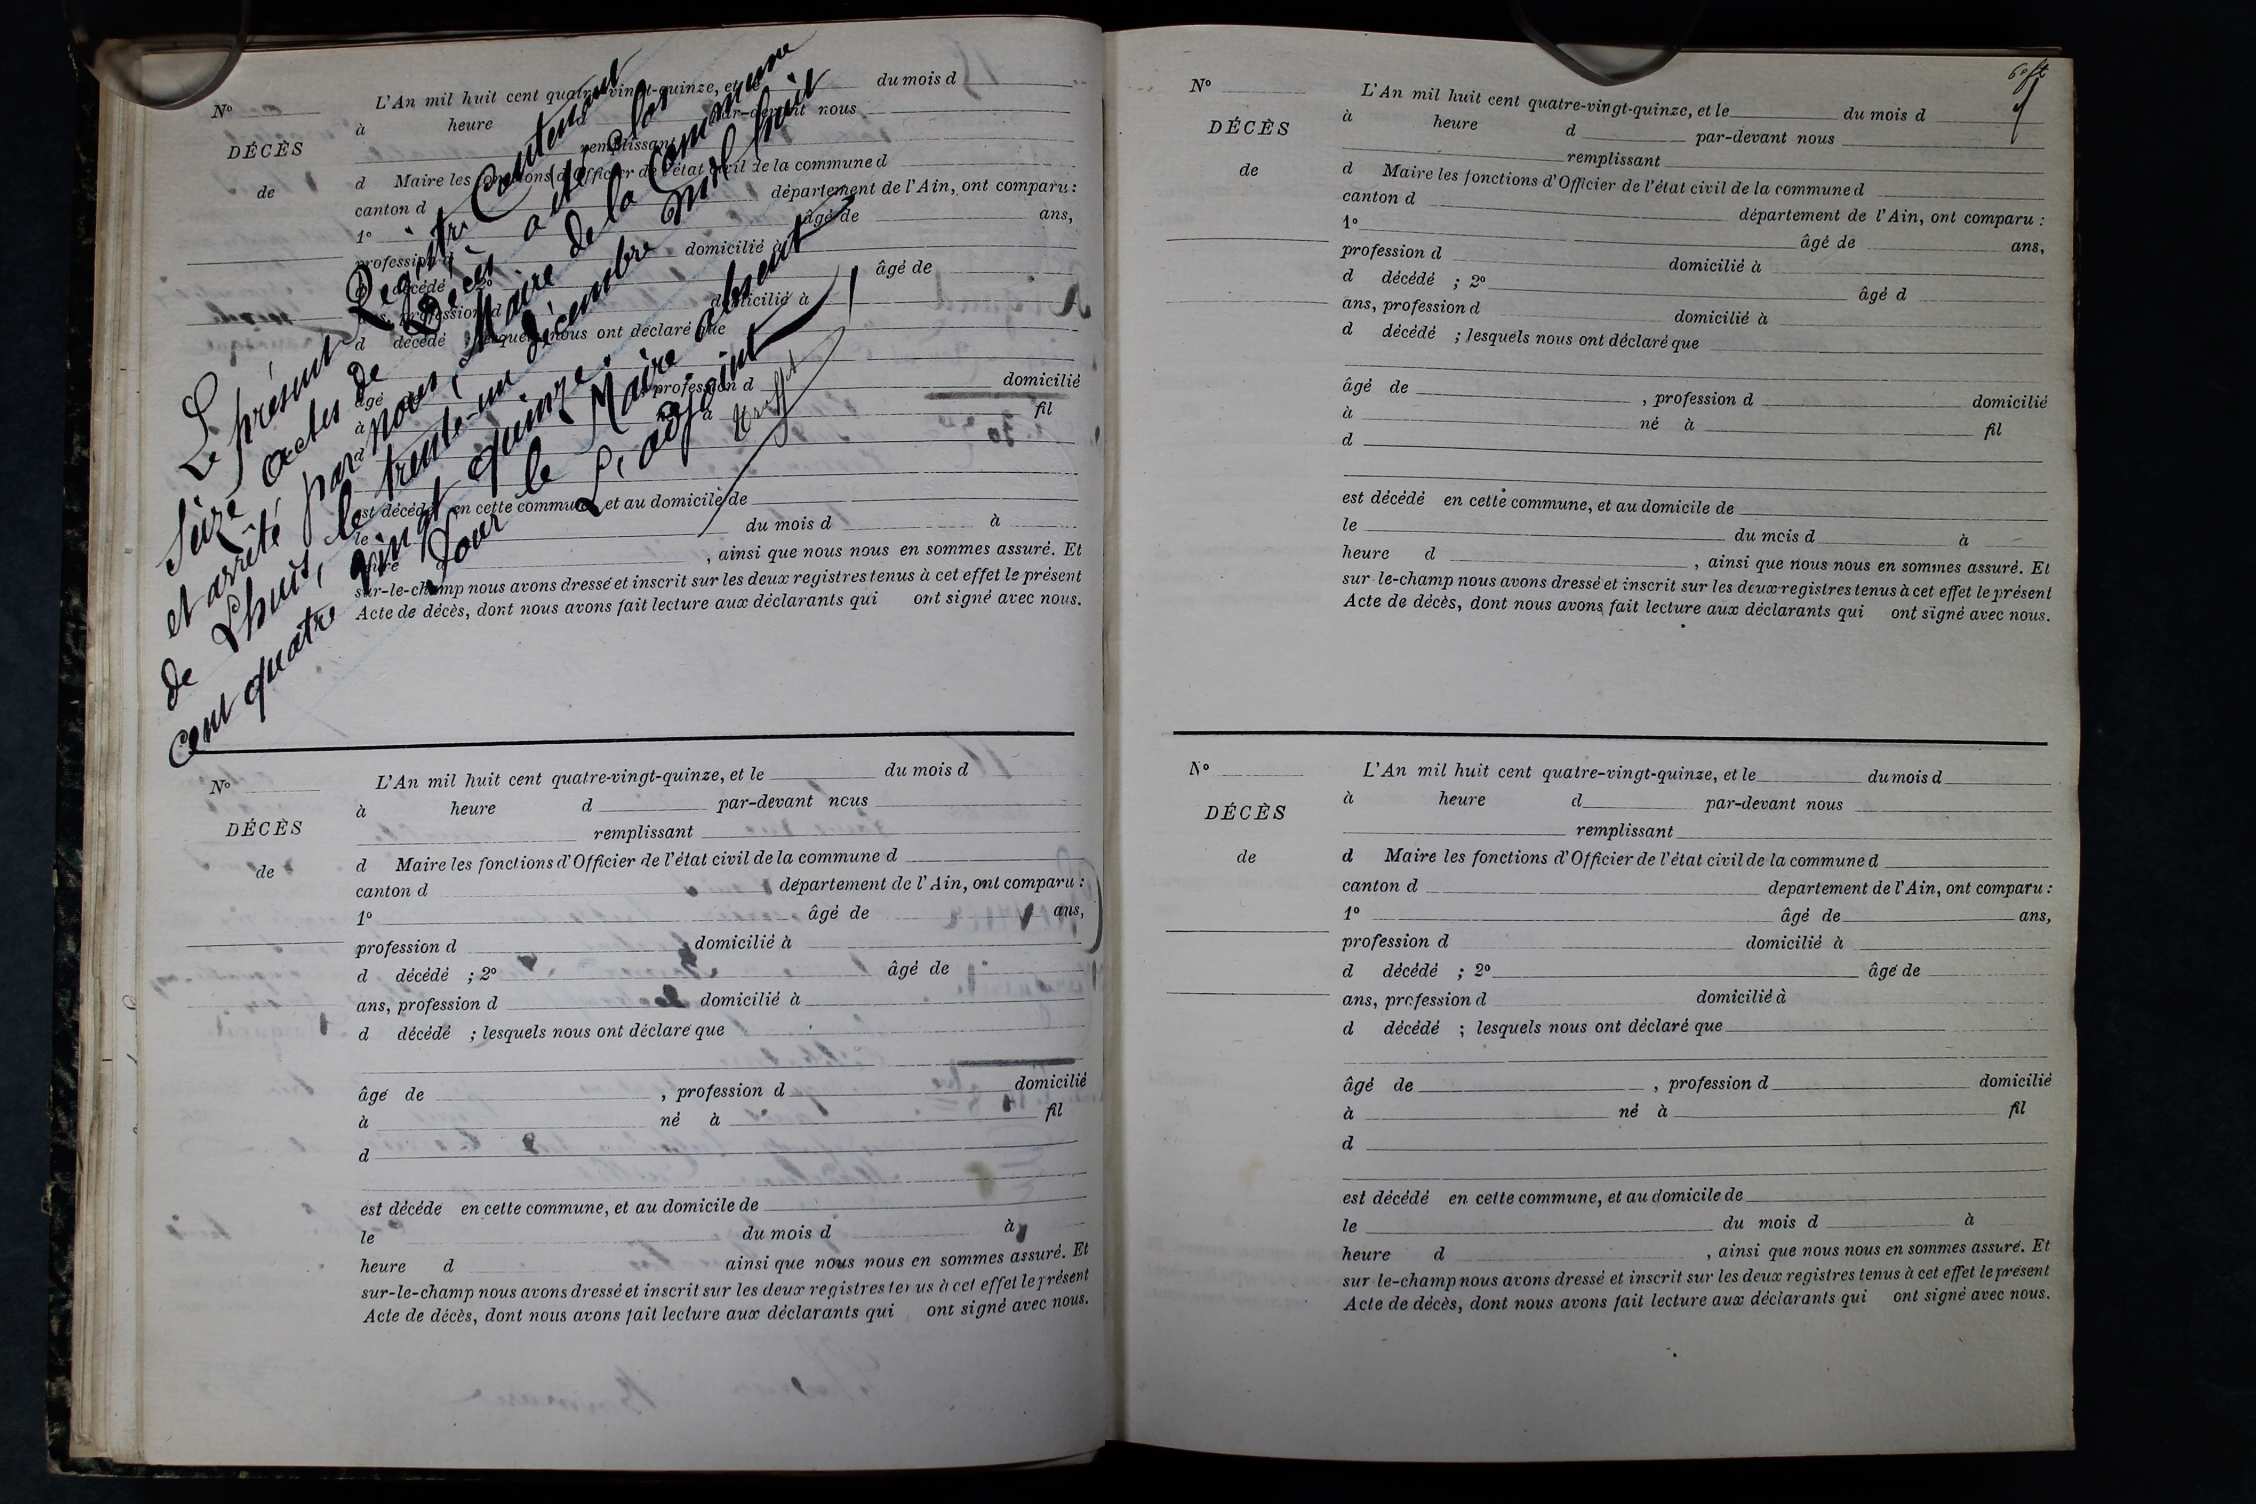 Le présent Registre Contenant
Seize actes de Décès a été clos
et arrêté par nous, Maire de la Commune
de Lhuis, le trente-un Décembre mil huit
cent quatre vingt quinze.
Pour le Maire absent
L'adjoint
No
DÉCÈS
de
L'An mil huit cent quatre-vingt-quinze, et le du mois d
à heure d par-devant nous
remplissant
d Maire les fonctions d'Officier de l'état civil de la commune d
canton d département de l'Ain, ont comparu :
1o âgé de ans,
profession d domicilié à
d décédé ; 2o âgé de
ans, profession d domicilié à
d décédé ; lesquels nous ont déclaré que
âgé de , profession d domicilié
à né à fil
d
est décédé en cette commune, et au domicile de
le du mois d à
heure d , ainsi que nous nous en sommes assuré. Et
sur-le-champ nous avons dressé et inscrit sur les deux registres tenus à cet effet le présent
Acte de décès, dont nous avons fait lecture aux déclarants qui ont signé avec nous.
No
DÉCÈS
de
L'An mil huit cent quatre-vingt-quinze, et le du mois d
à heure d par-devant nous
remplissant
d Maire les fonctions d'Officier de l'état civil de la commune d
canton d département de l'Ain, ont comparu :
1o âgé de ans,
profession d domicilié à
d décédé ; 2o âgé de
ans, profession d domicilié à
d décédé ; lesquels nous ont déclaré que
âgé de , profession d domicilié
à né à fil
d
est décédé en cette commune, et au domicile de
le du mois d à
heure d ainsi que nous nous en sommes assuré. Et
sur-le-champ nous avons dressé et inscrit sur les deux registres tenus à cet effet le présent
Acte de décès, dont nous avons fait lecture aux déclarants qui ont signé avec nous.
No
DÉCÈS
de
L'An mil huit cent quatre-vingt-quinze, et le du mois d
à heure d par-devant nous
remplissant
d Maire les fonctions d'Officier de l'état civil de la commune d
canton d département de l'Ain, ont comparu :
1o âgé de ans,
profession d domicilié à
d décédé ; 2o âgé d
ans, profession d domicilié à
d décédé ; lesquels nous ont déclaré que
âgé de , profession d domicilié
à né à fil
d
est décédé en cette commune, et au domicile de
le du mois d à
heure d , ainsi que nous nous en sommes assuré. Et
sur-le-champ nous avons dressé et inscrit sur les deux registres tenus à cet effet le présent
Acte de décès, dont nous avons fait lecture aux déclarants qui ont signé avec nous.
No
DÉCÈS
de
L'An mil huit cent quatre-vingt-quinze, et le du mois d
à heure d par-devant nous
remplissant
d Maire les fonctions d'Officier de l'état civil de la commune d
canton d departement de l'Ain, ont comparu :
1o âgé de ans,
profession d domicilié à
d décédé ; 2o âgé de
ans, profession d domicilié à
d décédé ; lesquels nous ont déclaré que
âgé de , profession d domicilié
à né à fil
d
est décédé en cette commune, et au domicile de
le du mois d à
heure d , ainsi que nous nous en sommes assuré. Et
sur-le-champ nous avons dressé et inscrit sur les deux registres tenus à cet effet le présent
Acte de décès, dont nous avons fait lecture aux déclarants qui ont signé avec nous.